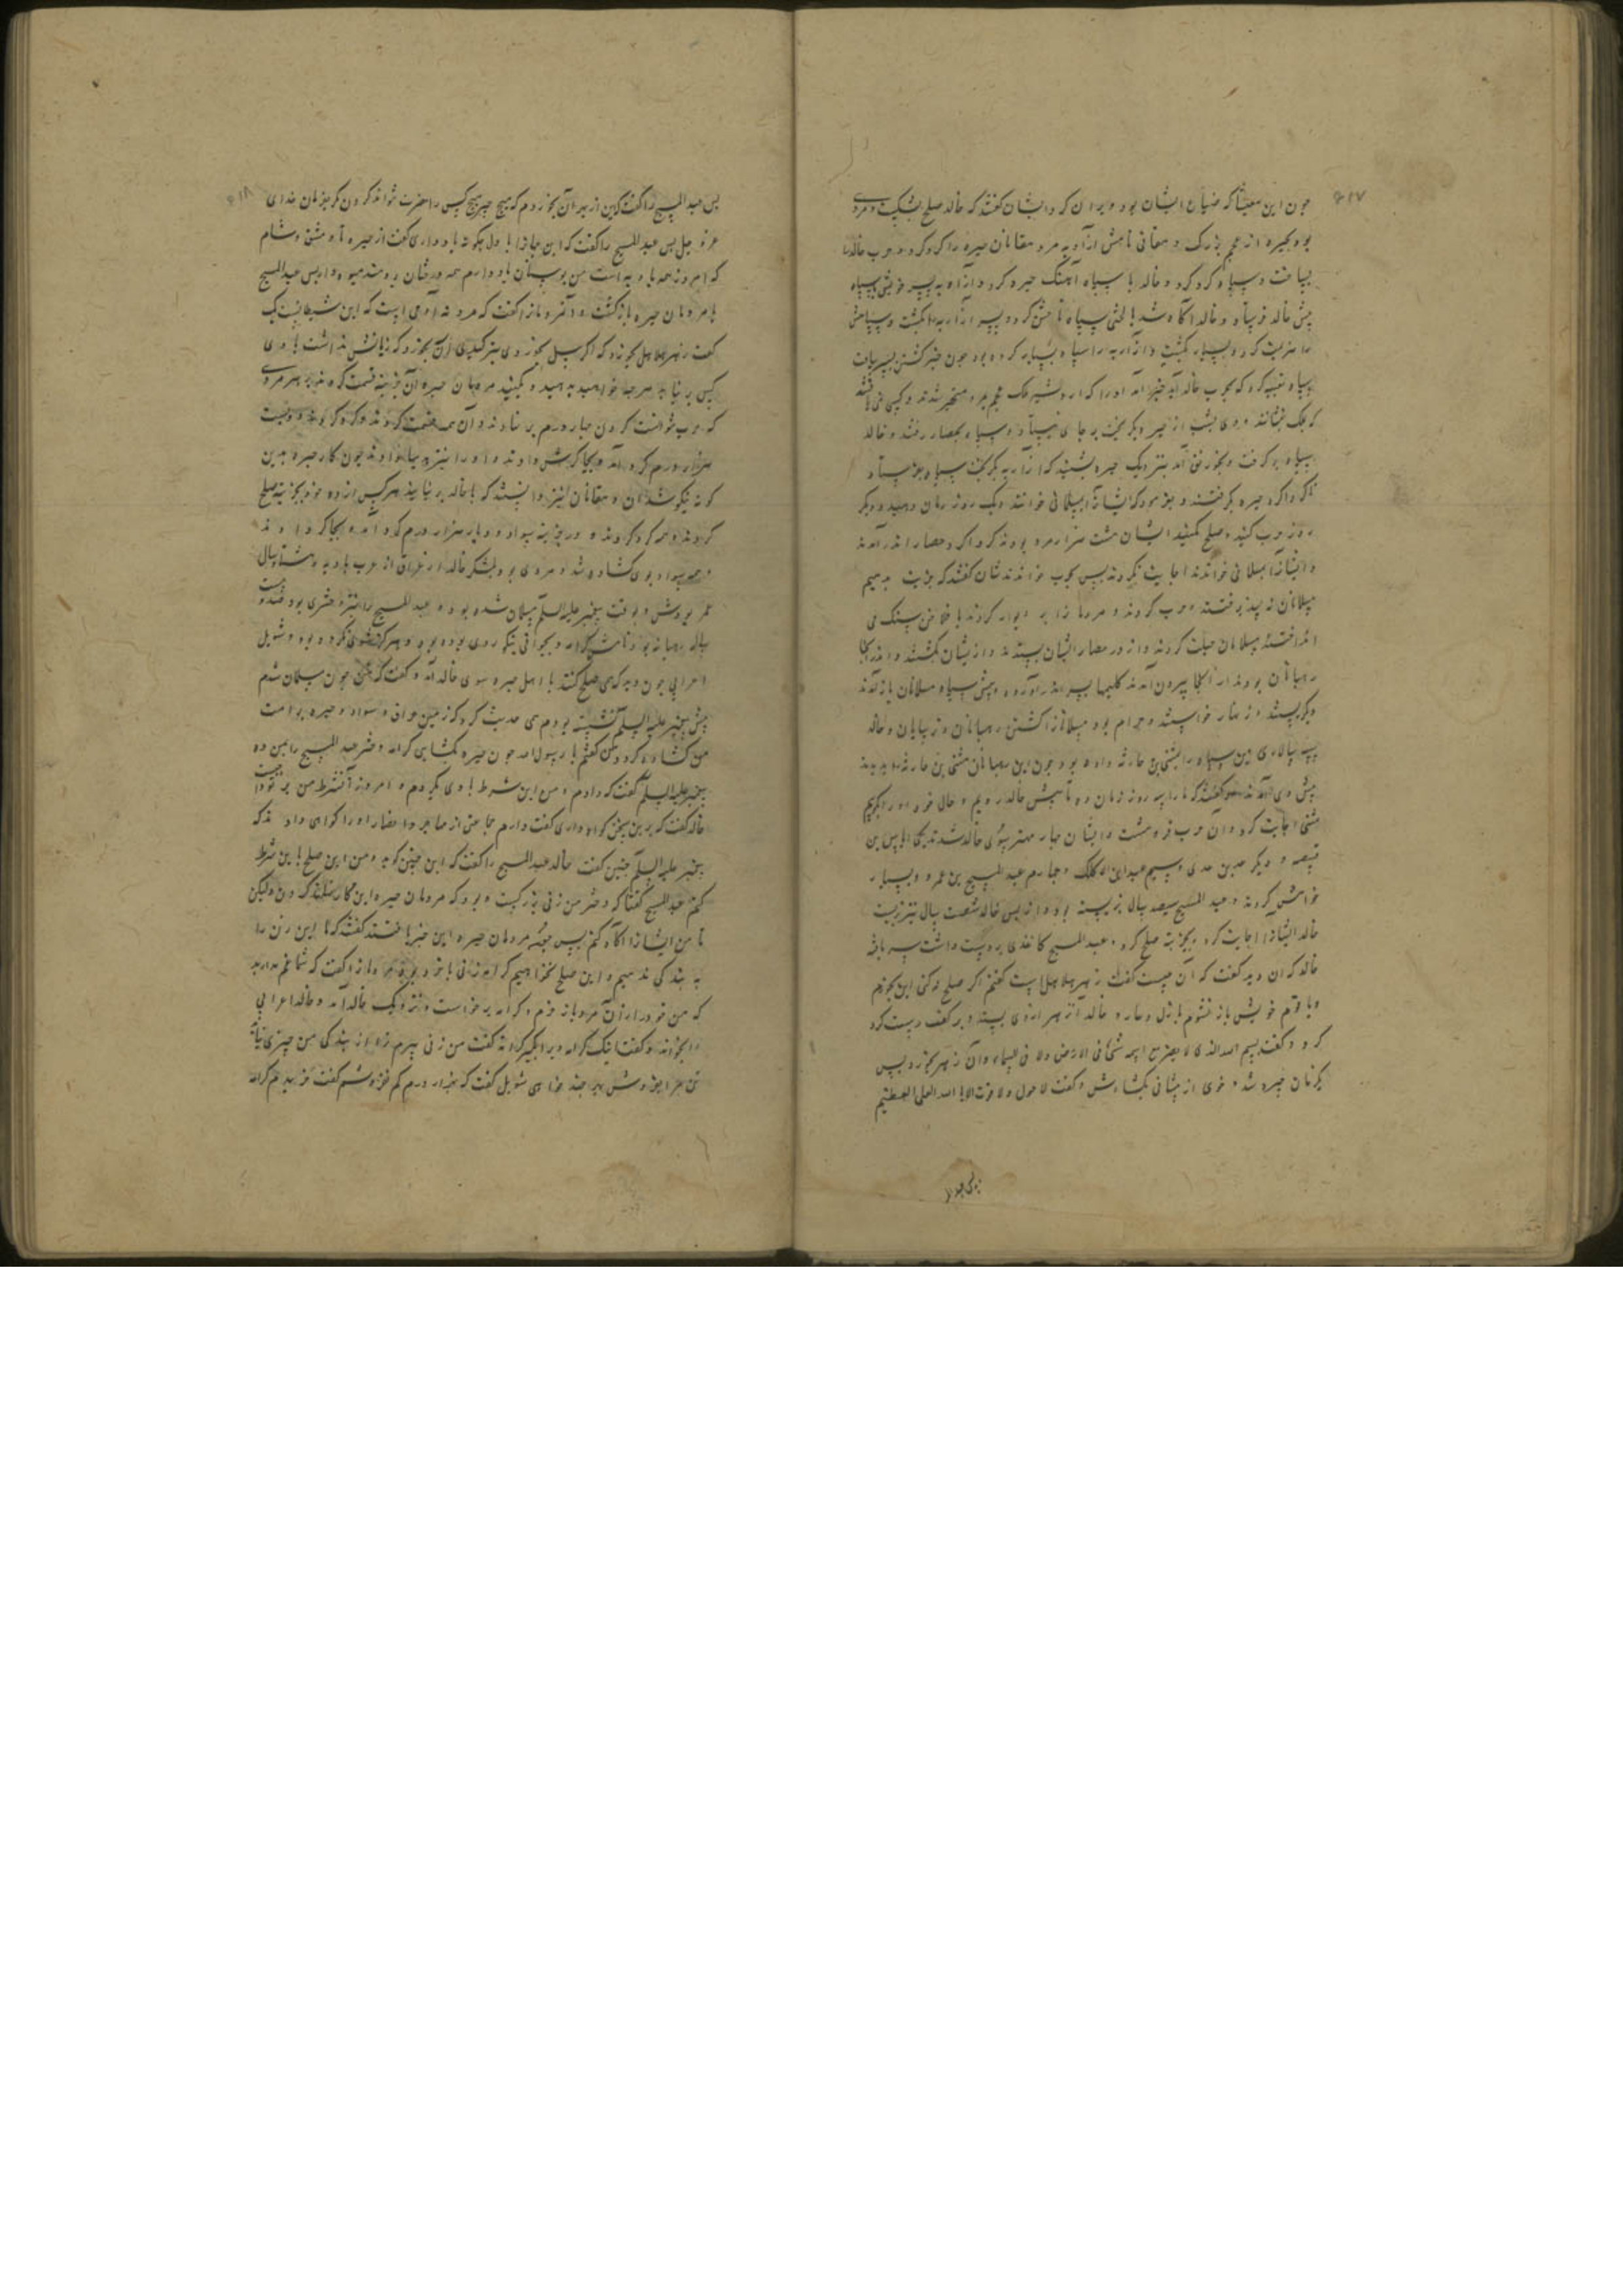 چون این معیشتها که ضیاع ایشان بود ویران کرد ایشان گفتند که خالد صلح بشکست و مردی
بود بحیره از عجم بزرگ دهقانی نامش ازآدبه مر دهقانان حیره را گرد کرد و حرب خالد را
بساخت و سپاه گرد کرد و خالد با سپاه آهنگ حیره کرد و ازآدبه پسر خویش را با سپاه
پیش خالد فرستاد و خالد آگاه شد با لختی سپاه تاختن کرد و پسر ازآدبه را بکشت و سپاهش
را هزیمت کرد و بسیار بکشت و ازآدبه را سپاه بسیار گرد آمده بود چون خبر کشتن پسر بیافت
سپاه تعبیه کرد که بحرب خالد آید خبر آمد او را که اردشیر ملک عجم بمرد متحیر شدند و کسی نمی یافتند
که ملک بنشانند و وی بشب از حیره بگریخت بر جای نیستاد و سپاه بحصار رفتند و خالد
سپاه برگرفت و بخورنق آمد بنزدیک حیره بشنید که ازآدبه بگریخت سپاه بفرستاد و
گرداگرد حیره بگرفتند و بفرمود که ایشانرا بمسلمانی خوانند و یک روز زمان دهید و دیگر
روز حرب کنید و صلح مکنید ایشان هشت هزار مرد بودند گرداگرد حصار اندر آمدند
و ایشانرا بمسلمانی خواندند اجابت نکردند پس بحرب خواندندشان گفتند که جزیت بدهیم
مسلمانان نپذیرفتند و حرب کردند و مردمان از بر دیوار کردند با فلاخن سنگ می
انداختند مسلمانان حملت کردند و از در حصار ایشان بستدند و از ایشان بکشتند و اندر آنجا
رهبانان بودند از آنجا بیرون آمدند کلیمها بسر اندر آورده و پیش سپاه مسلمانان باز آمدند
و بگریستند و زنهار خواستند و حرام بود مسلمانانرا کشتن رهبانان و ترسایان و خالد
سپهسالاری این سپاه را بمثنی بن حارثه داده بود چون این رهبانان مثنی بن حارثه را بدیدند
پیش وی آمدند و گفتند که ما را سه روز زمان ده تا پیش خالد رویم و حال خود او را بگوییم
مثنی اجابت کرد و آن حرب فرو هشت و ایشان چهار مهتر بسوی خالد شدند یکی ایاس بن
قبیصه و دیگر عدی بن عدی و سیم عبد ابن الاکلک و چهارم عبد المسیح بن عمرو و بسیار
خواهش کردند و عبد المسیح سیصد سال بزیسته بود و از پس خالد شصت سال نیز بزیست
خالد ایشانرا اجابت کرد و بجزیت صلح کرد و عبد المسیح کاغذی بدست داشت سر بافته
خالد که آن دید گفت که آن چیست گفت زهر هلاهل است گفتم اگر صلح نکنی این بخورم
و با قوم خویش باز نشوم با ذل و عار و خالد آن زهر از وی بستد و بر کف دست کرد
کرد و گفت بسم الله الذی لا یضر مع اسمه شئ فی الارض ولا فی السماء و آن زهر بخورد پس
یکزمان خیره شد و خوی از پیشانی بگشادش و گفت لا حول ولا قوت الا بالله العلی العظیم
پس عبد المسیح را گفت که این از بهر آن بخوردم که هیچ چیز هیچ کس را مضرت نتواند کردن مگر بفرمان خدای
عز و جل پس عبد المسیح را گفت که این جایها را باول چگونه یاد داری گفت از حیره تا دمشق و شام
که امروز همه بادیه است من بوستان یاد دارم همه درختان برومند میوه دار پس عبد المسیح
با مردمان حیره بازگشت و آن مردمانرا گفت که مرد نه آدمی است که این شیطانیست
گفت زهر هلاهل بخورد که اگر پیل بخوردی بترکیدی آن بخورد که زیانش نداشت با وی
کس بر نیاید هر چه خواهید بدهید و بکنید مردمان حیره آن جزیت قسمت کردند بر هر مردی
که حرب توانست کردن چهار درم بر نهادند و آن همه قسمت کردند و گرد کردند دویست
هزار درم گرد آمد و بجا گرش دادند و او را نیز بها دادند چون کار حیره بدین
گونه نیکو شد آن دهقانان نیز دانستند که با خالد بر نیایند هر کس از ده خود بجزیت صلح
کردند و همه گرد کردند و درخزینه سواد دو بار هزار هزار درم گرد آمد و بجا گرد
و همه سواد بوی گشاده شد و مردی بود بلشکر خالد از عراق از عرب بادیه و هشتاد سال
عمر بودش و بوقت پیغمبر علیه السلم مسلمان شده بود و عبد المسیح را نیز دختری بود هشتاد
ساله رهبانه بود نامش کرامه و بجوانی نیکو روی بوده بود و هرگز شوی نکرده بود و شویل
اعرابی چون دید که می صلح کنند با اهل حیره سوی خالد آمد و گفت که من چون مسلمان شدم
پیش پیغمبر علیه السلم نشسته بودم می حدیث کرد که زمین عراق و سواد و حیره بر امت
من گشاده گردد من گفتم یا رسول الله چون حیره بگشایی کرامه دختر عبد المسیح را بمن ده
پیغمبر علیه السلم گفت که دادم و من این شرط با وی بکردم و امروز آن شرط من بر تو واجب است
خالد گفت که برین سخن گواه داری گفت دارم جماعتی از مهاجر و انصار او را گواهی دادند که
پیغمبر علیه السلم چنین گفت خالد عبد المسیح را گفت که این چنین گوید و من این صلح باین شرط
کنم عبد المسیح گفتا که دختر من زنی بزرگست و بود که مردمان حیره این کار نپسندند ولیکن
تا من ایشانرا آگاه کنم پس چون مردمان حیره این خبر یافتند گفتند که ما این زن را
به بندگی ندهیم و این صلح نخواهیم کرامه زنی با خرد بود مردمانرا گفت که شما غم مدارید
که من خود را از آن مرد باز خرم و کرامه برخاست و نزدیک خالد آمد و خالد اعرابی
را بخواند و گفت اینک کرامه ویرا بگیر کرامه گفت من زنی پیرم ترا از بندگی من چیزی نیاید
تن مرا بفروش بهر چند خواهی شویل گفت که بهزار درم کم نفروشم گفت خریدم کرامه